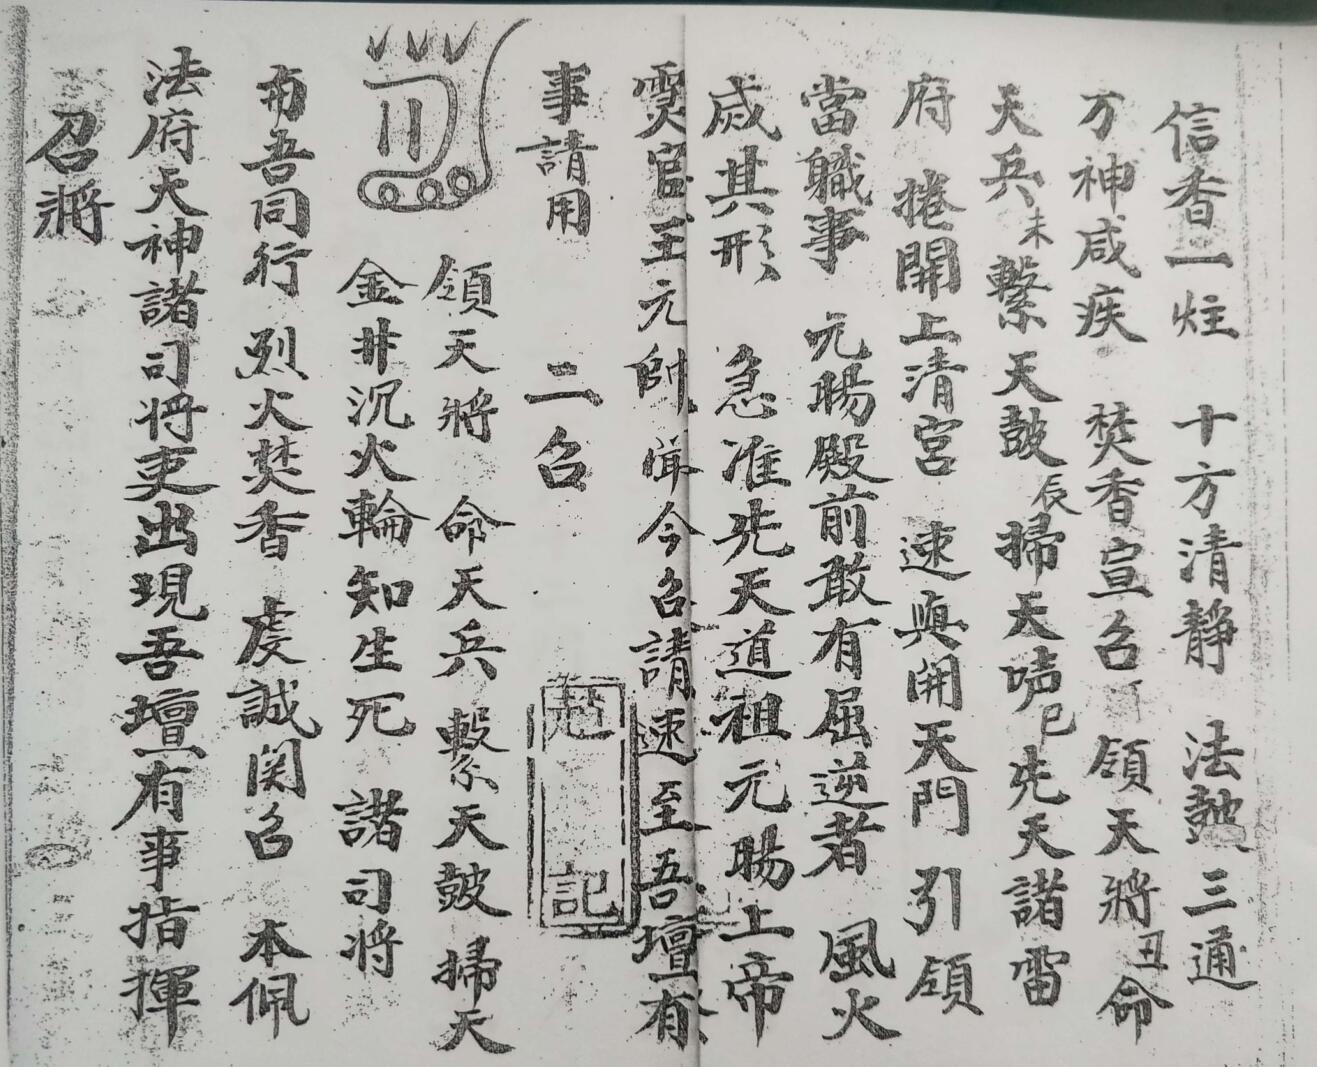 信香一炷　十方清靜　法鼓三通
万神咸疾　焚香宣召　領天將丑命
天兵未繫天鼓辰掃天唬巳先天諸雷
府　捲開上清宮　速與開天門　引領
當職事　元暘殿前敢有屈逆者　風火
滅其形　急准先天道祖元暘上帝
灵官王元帥　聞今召請速至吾壇有
事請用　二召
領天將　命天兵　繫天鼓　掃天
金井沉火輪知生死　諸司將
布吾同行　烈火焚香　虔誠関召　本佩
法府天神諸司將吏出現吾壇有事指揮
召將
記